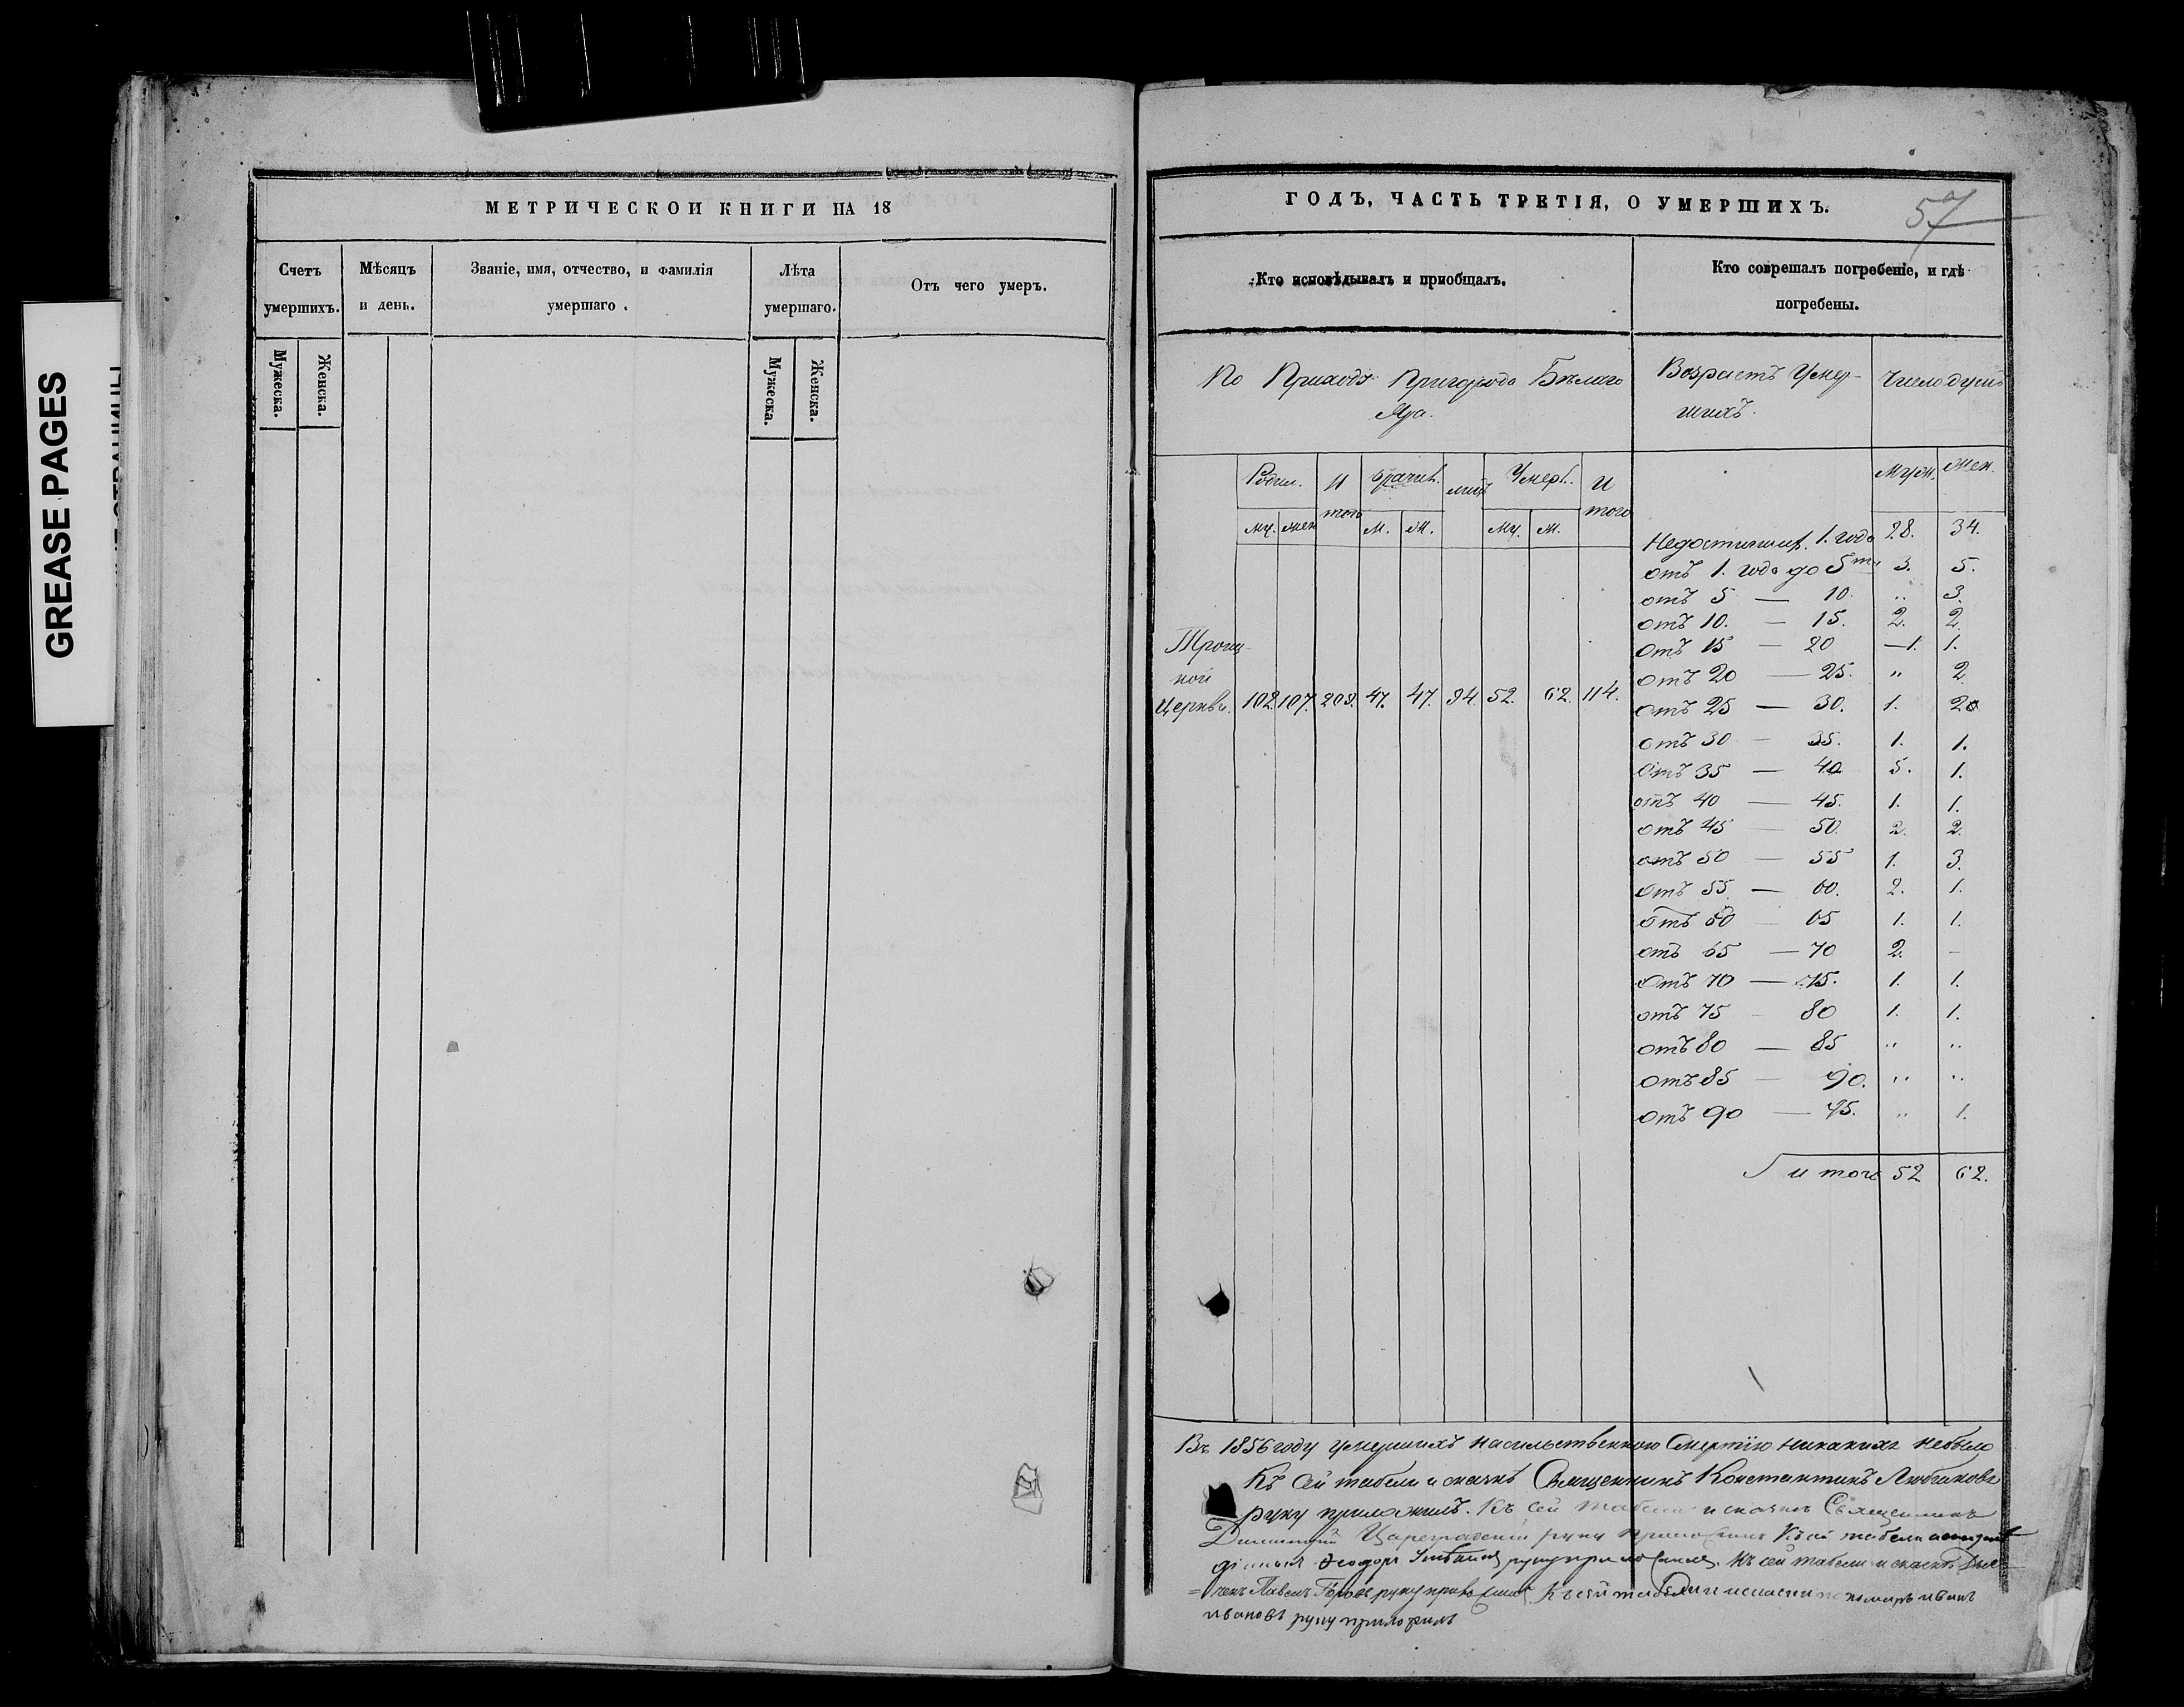 GREASE PAGES
МЕТРИЧЕСКОИ КНИГИ НА 18
Счетъ умершихъ.
Мѣсяцъ и день.
Званіе, имя, отчество, и фамилія умершаго.
Лѣта умершаго.
Отъ чего умеръ.
Мужеска.
Женска.
Мужеска.
Женска.
ГОДЪ, ЧАСТЬ ТРЕТІЯ, О УМЕРШИХЪ.
57
Кто исповѣдывалъ и пріобщалъ.
Кто соврешалъ погребеніе, и гдѣ
погребены.
По Приходу Пригорода Бѣлаго
Яра.
Возрастъ Умер-
шихъ.
Число душъ
Родил. И того брачив. лицъ Умерв. И того
му. жен м. ж. му. ж.
Муж. Жен.
Троиц-
кой
Церкви. 102. 107. 209. 47. 47. 94. 52. 62. 114.
Недостигших. 1. года 28. 34.
отъ 1. года до 5ти 3. 5.
отъ 5 — 10. „ 3.
отъ 10. — 15. 2. 2.
отъ 15 — 20 —1. 1.
отъ 20 — 25. „ 2
отъ 25 — 30. 1. 2
отъ 30 — 35. 1. 1.
отъ 35 — 40 5. 1.
отъ 40 — 45. 1. 1.
отъ 45 — 50. 2. 2.
отъ 50 — 55 1. 3.
отъ 55 — 60. 2. 1.
отъ 60 — 65 1. 1.
отъ 65 — 70 2. —
отъ 70 — 75. 1. 1.
отъ 75 — 80 1. 1.
отъ 80 — 85 „ „
отъ 85 — 90. „ „
отъ 90 — 95. „ 1.
и того 52 62.
Въ 1856 году умершихъ насильственною Смертію никакихъ небыло
Къ Сей табели и сказкѣ Священникъ Константинъ
руку приложилъ. Къ сей табели и сказкѣ Священникъ
Димитрій Цареградскій руку приложилъ Къ сей табели
Ѳеодоръ руку приложилъ. Къ сей табели и сказкѣ Дья-
=чекъ Павелъ руку приложилъ Къ сей табели и сказки пономарь иванъ
ивановъ руку приложилъ